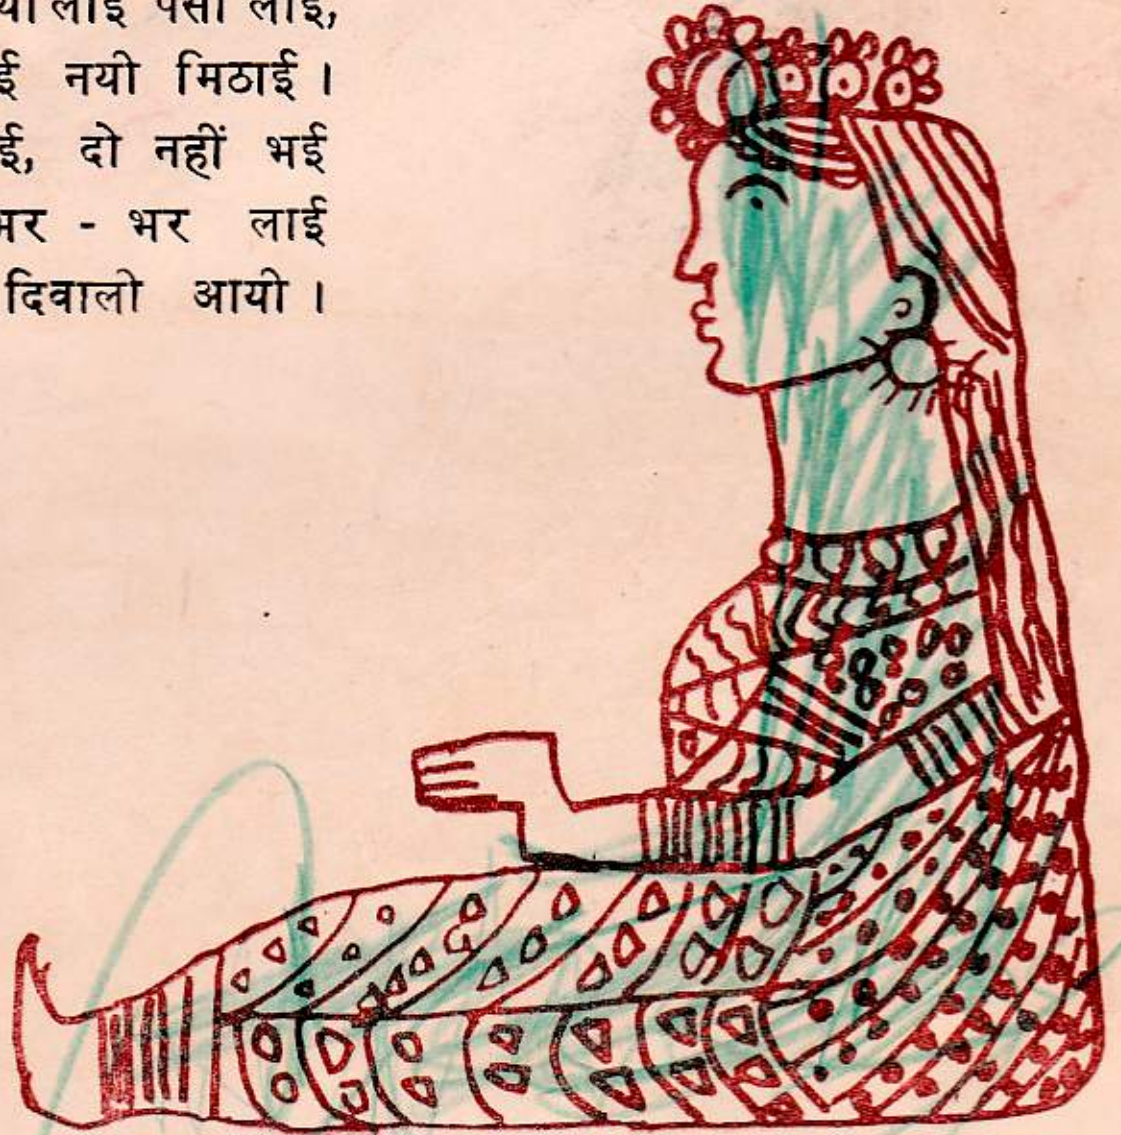 लाई पैसा लाई,
नयी मिठाई ।
दो नहीं भई
भर - भर लाई
दिवाली आयी ।